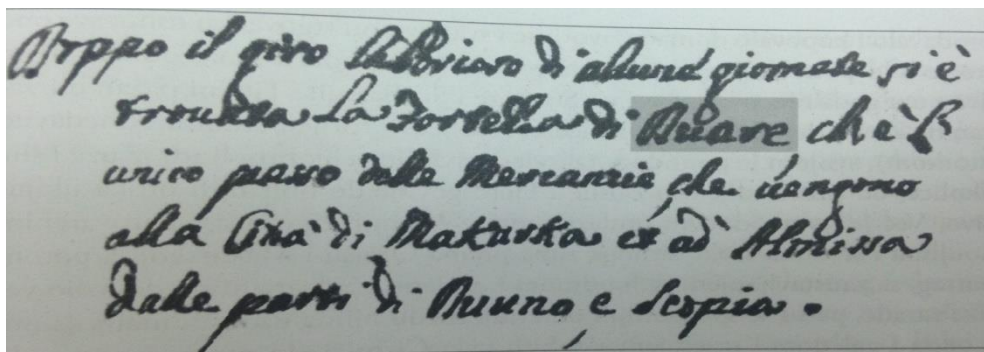 Doppo il giro laborioso di alcune giornate si è
trovata La Fortezza di Duare che è l'
unico passo delle Mercanzie, che uengono
alla Cità di Makarska et ad Almissa
dalle parti di Duuno, e Scopia.